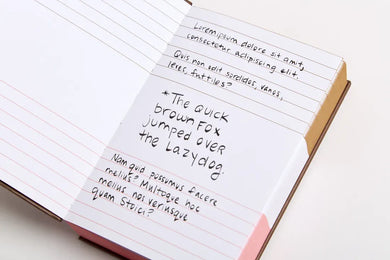 Loremipsum dolore sit amit,
consectetur adipiscing elit.
Quis non odit sordidos, vanos,
leves, futtiles?
*The Quick
brown Fox
jumped over
the Lazydog.
Nam quid possumus facere
melius? Multoque hoc
melius nos veriusque
quam Stoici?